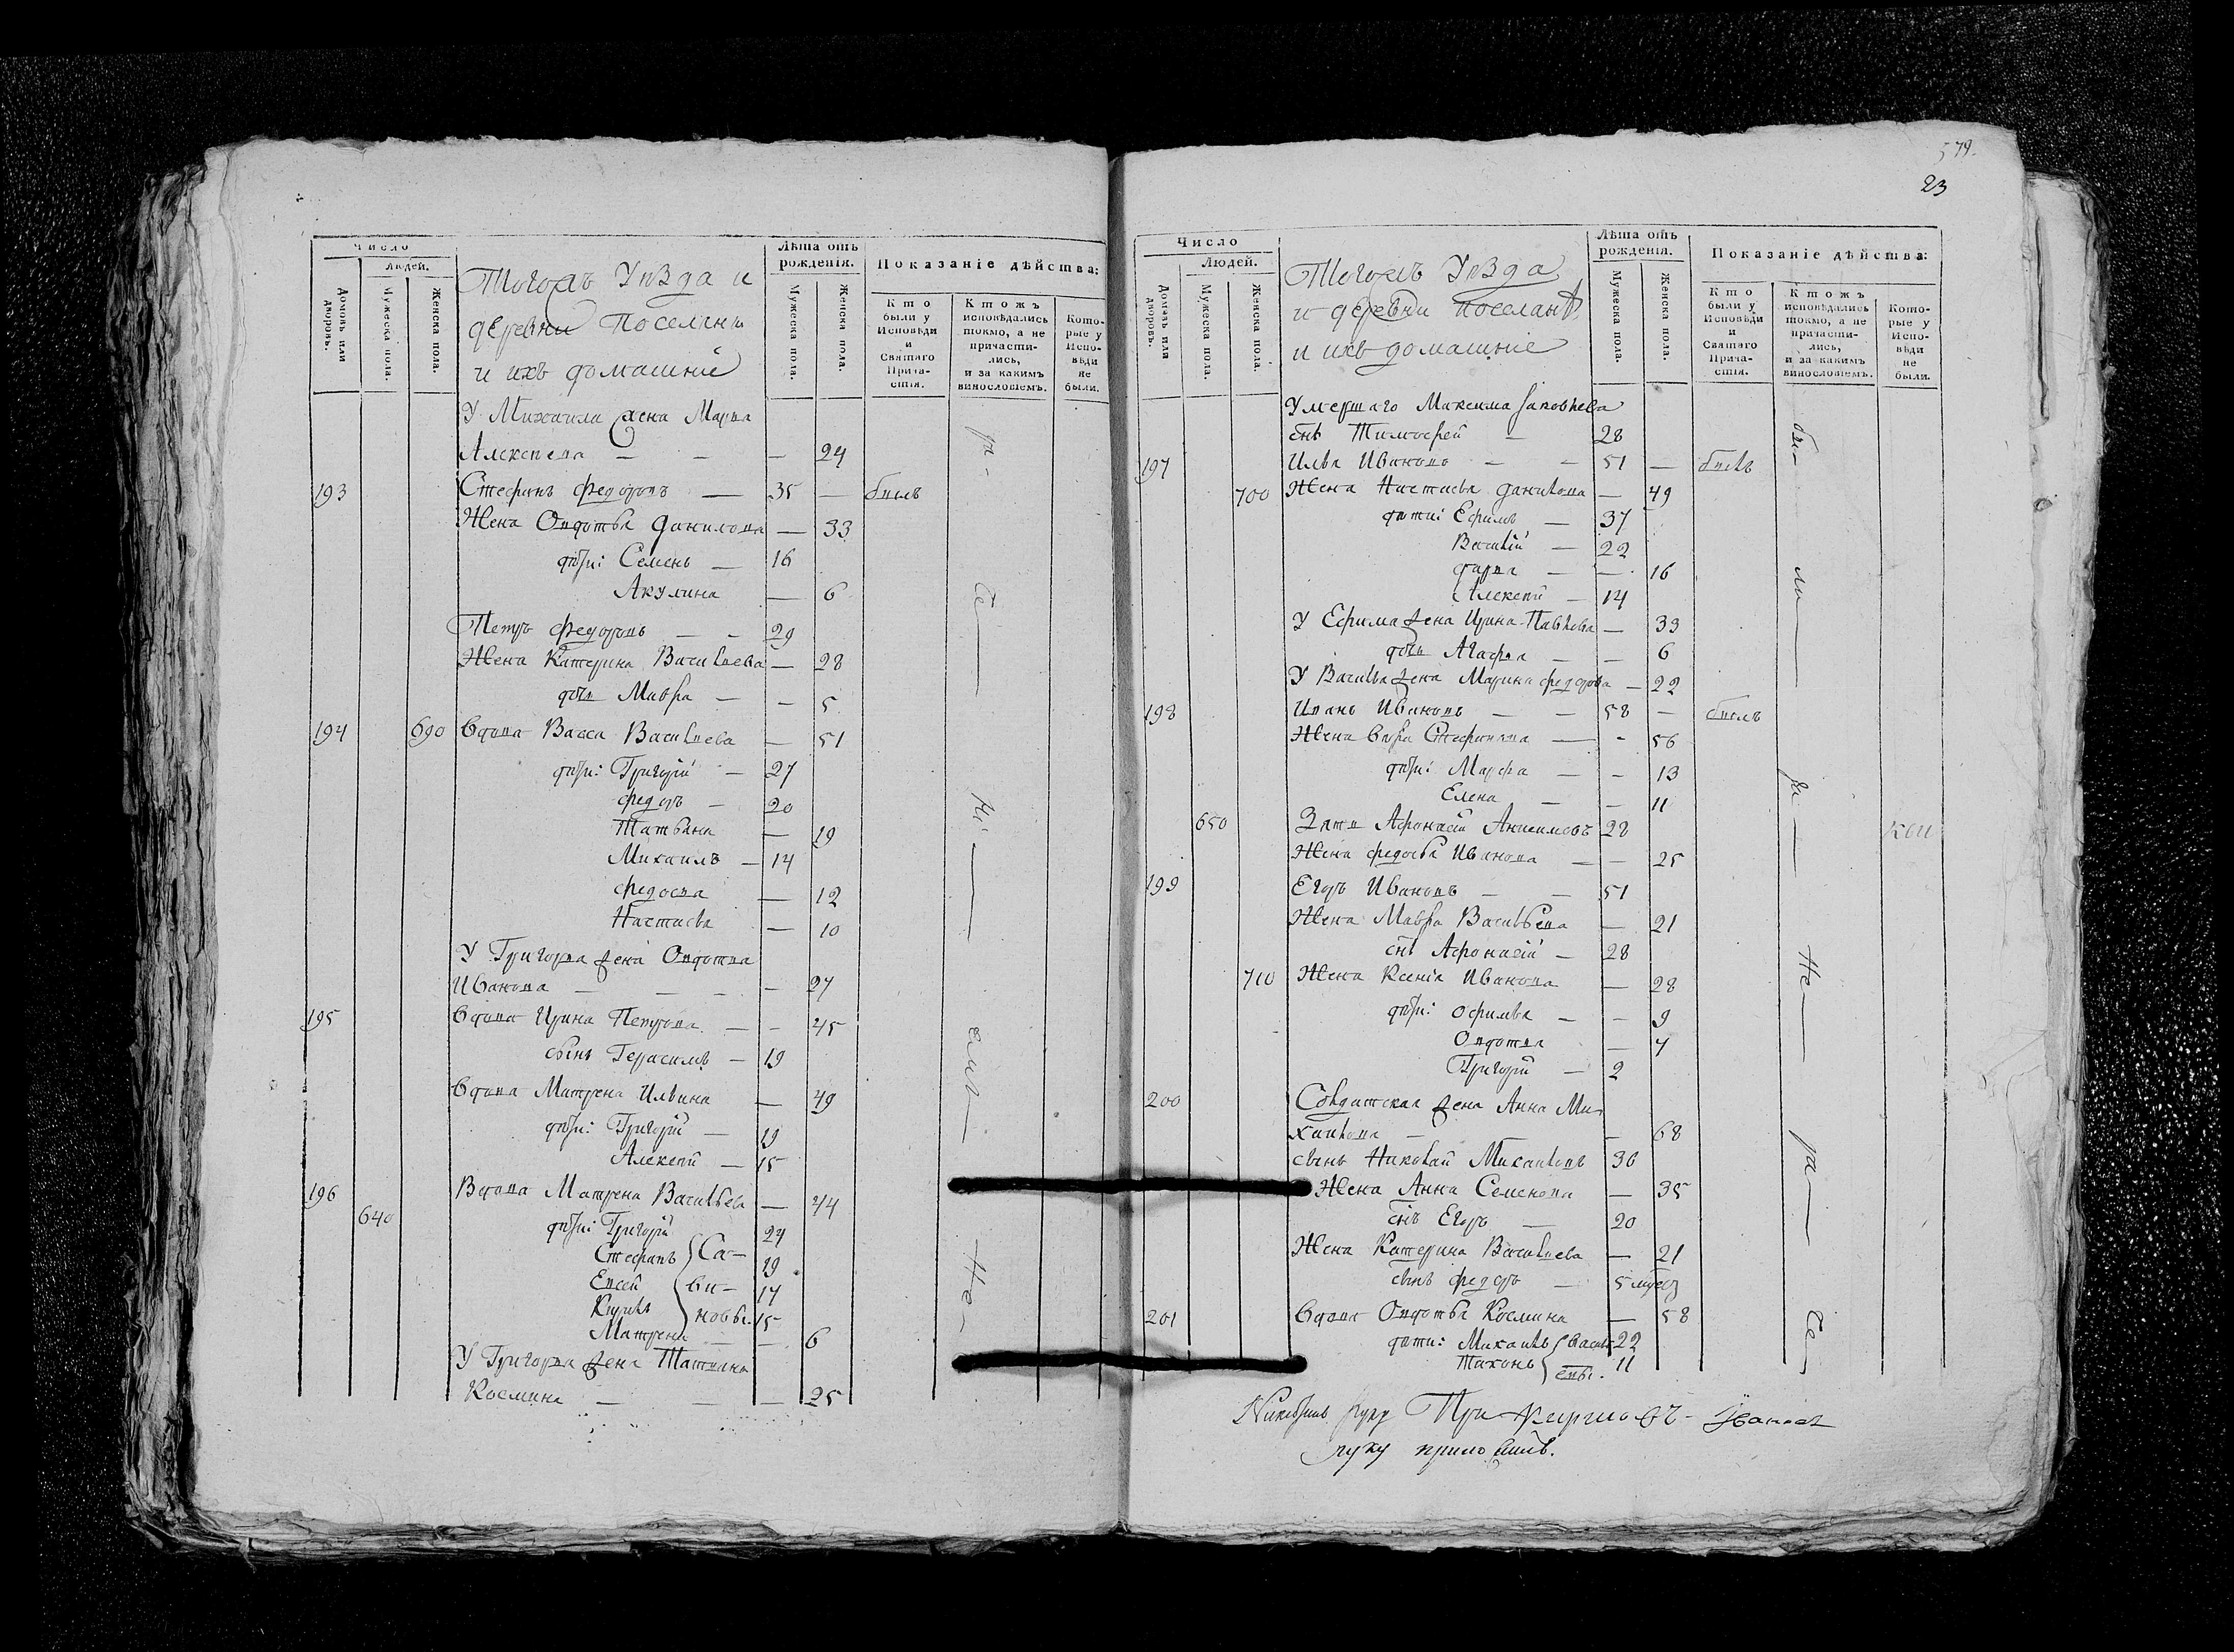 Число
Людей.
Домовъ или дворовъ.
Мужеска пола.
Женска пола.
Тогожъ Уѣзда и
деревни Поселяни
и ихъ домашніе
Лѣта отъ рожденія.
Мужеска пола.
Женска пола.
Показаніе дѣйства:
Кто были у Исповѣди и Святаго Причастія.
Ктожъ исповѣдались токмо, а не причастились, и за какимъ винословіемъ.
Которые у Исповѣди не были.
У Михаила жена Марѳа
Алексѣева — — — 24
193 Стефанъ Федоровъ — 35 — былъ
Жена Овдотья Данилова — 33
дѣти: Семенъ — 16
Акулина — 6
Петръ Федоровъ — - 29
Жена Катерина Василиева — 28
дочь Мавра — - 5
194 690 Вдова Васса Василиева — 51
дѣти: Григорій — 27
Федоръ — 20
Татьяна — 19
Михаилъ — 14
Федосья — 12
Настасья — 10
У Григорья жена Овдотья
Иванова — — - - 27
195 Вдова Ирина Петрова — - 45
сынъ Герасимъ — 19
Вдова Матрена Ильина — 49
дѣти: Григорій — 19
Алексѣй — 15
196 Вдова Матрена Васильева — 44
640 дѣти: Григорій 24
Стефанъ Са- 19
Евсей ви- 17
Кирилъ новы. 15
Матрена — — 6
У Григорья жена Татьяна
Космина — — — 25
579.
23
Число
Людей.
Домовъ или дворовъ.
Мужеска пола.
Женска пола.
Тогожъ Уѣзда
и деревни поселянѣ
и ихъ домашніе
Лѣта отъ рожденія.
Мужеска пола.
Женска пола.
Показаніе дѣйства:
Кто были у Исповѣди и Святаго Причастія.
Ктожъ исповѣдались токмо, а не причастились, и за какимъ винословіемъ.
Которые у Исповѣди не были.
Умершаго Максима Яковлева
снъ Тимофей — 28
197 Илья Ивановъ — — 51 — былъ
700 Жена Настасья Данилова — 49
дѣти: Ефимъ — 37
Василій — 22
Дарья — — 16
Алексѣй — 14
У Ефима жена Ирина Павлова — 33
дочь Агафья — — 6
У Василья жена Марина Федорова — 22
198 Иванъ Ивановъ — — 58 — былъ
Жена Вера Стефанова — - 56
дѣти: Марфа — - 13
Елена — — 11
650 Зять Афонасій Анисимовъ 28
Жена Федосья Иванова — — 25
199 Егоръ Ивановъ — — 51
Жена Мавра Васильева — 21
снъ Афонасій — 28
710 Жена Ксенія Иванова — 28
дѣти: Офимья — - 9
Овдотья — 7
Григорій — 2
200 Солдатская жена Анна Ми-
хаилова — — 68
сынъ Николай Михаиловъ 36
Жена Анна Семенова — 35
снъ Егоръ — 20
Жена Катерина Василиева — 21
сынъ Федоръ — 5
201 Вдова Овдотья Космина — 58
дѣти: Михаилъ Василь- 22
Тихонъ евы. 11
руку приложилъ.